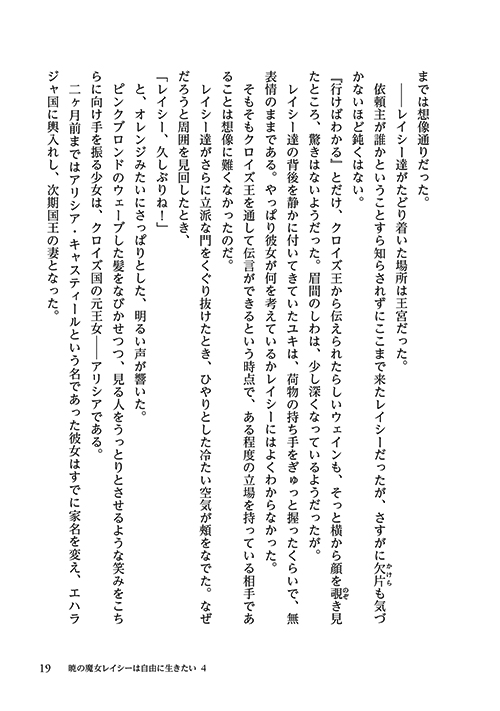 までは想像通りだった。
――レイシー達がたどり着いた場所は王宮だった。
依頼主が誰かということすら知らされずにここまで来たレイシーだったが、さすがに欠片も気づ
かないほど鈍くはない。
『行けばわかる』とだけ、クロイズ王から伝えられたらしいウェインも、そっと横から顔を覗き見
たところ、驚きはないようだった。眉間のしわは、少し深くなっているようだったが。
レイシー達の背後を静かに付いてきていたユキは、荷物の持ち手をぎゅっと握ったくらいで、無
表情のままである。やっぱり彼女が何を考えているかレイシーにはよくわからなかった。
そもそもクロイズ王を通して伝言ができるという時点で、ある程度の立場を持っている相手であ
ることは想像に難くなかったのだ。
レイシー達がさらに立派な門をくぐり抜けたとき、ひやりとした冷たい空気が頬をなでた。なぜ
だろうと周囲を見回したとき、
「レイシー、久しぶりね！」
と、オレンジみたいにさっぱりとした、明るい声が響いた。
ピンクブロンドのウェーブした髪をなびかせつつ、見る人をうっとりとさせるような笑みをこち
らに向け手を振る少女は、クロイズ国の元王女――アリシアである。
二ヶ月前まではアリシア・キャスティールという名であった彼女はすでに家名を変え、エハラ
ジャ国に輿入れし、次期国王の妻となった。
かけら
のぞ
19 暁の魔女レイシーは自由に生きたい 4